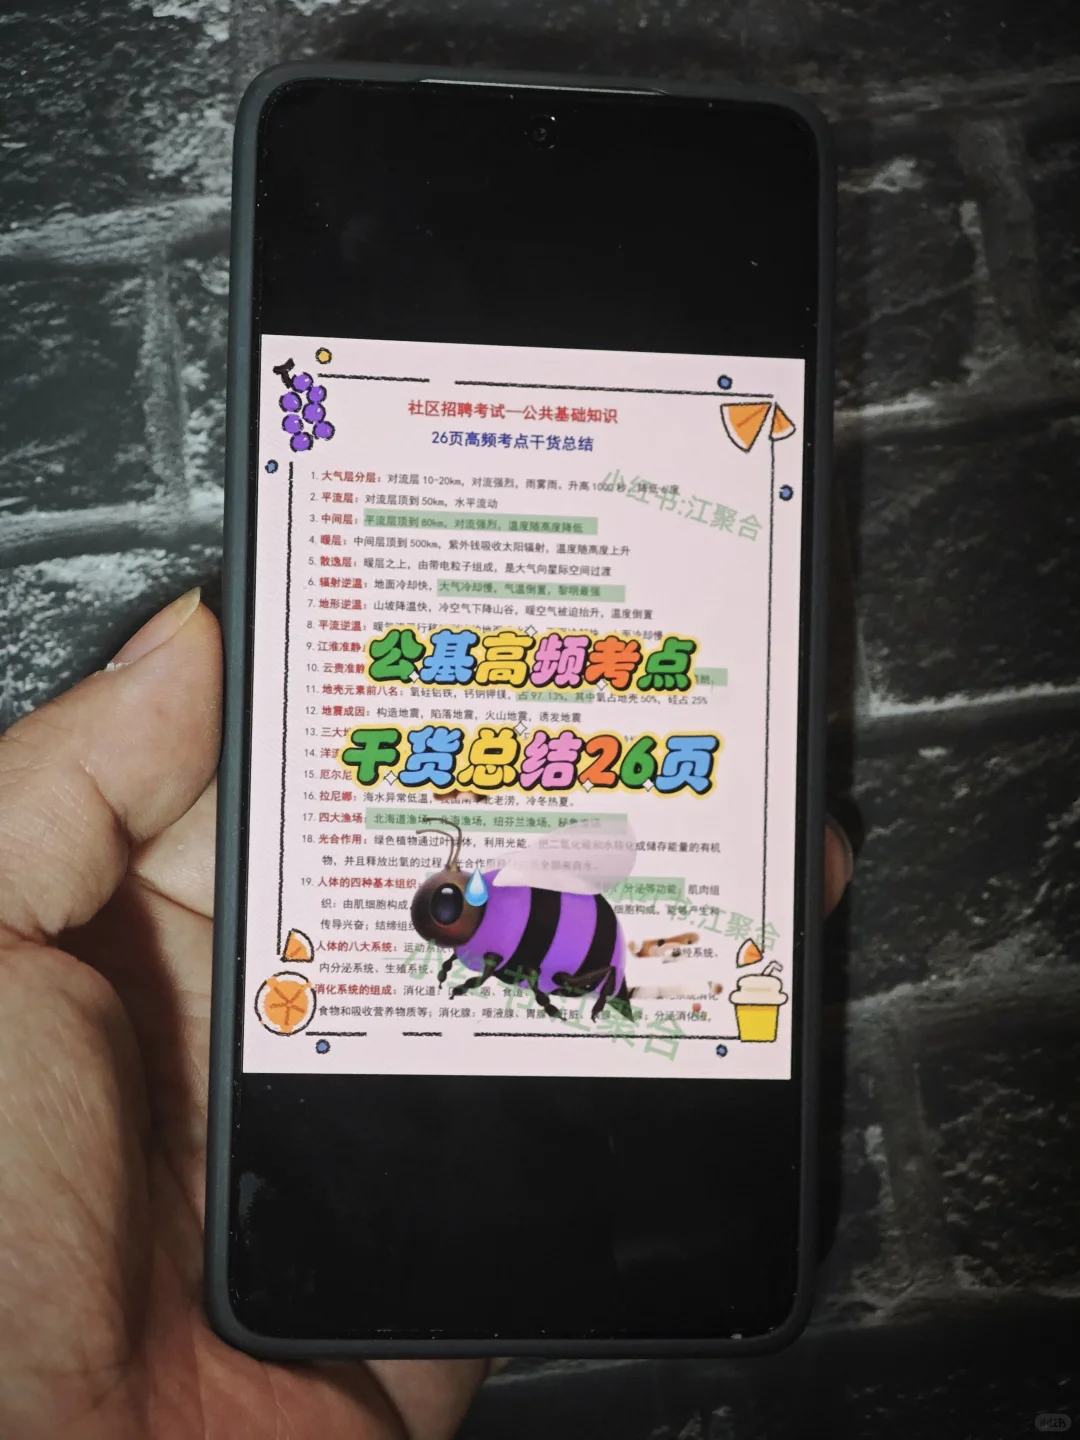 社区招聘考试—公共基础知识
26页高频考点干货总结
1. 大气层分层：对流层 10-20km，对流强烈，雨雾雨。升高 1000 降低 6度
2. 平流层：对流层顶到 50km，水平流动
3. 中间层：平流层顶到 80km，对流强烈，温度随高度降低
4. 暖层：中间层顶到 500km，紫外钱吸收太阳辐射，温度随高度上升
5. 散逸层：暖层之上，由带电粒子组成，是大气向星际空间过渡
6. 辐射逆温：地面冷却快，大气冷却慢，气温倒置，黎明最强
7. 地形逆温：山坡降温快，冷空气下降山谷，暖空气被迫抬升，温度倒置
8. 平流逆温：暖
9. 江淮准静
10. 云贵准静
公基高频考点
11. 地壳元素前八名：氧硅铝铁，钙钠钾镁，占 97.13%，其中氧占地壳 50%，硅占 25%
12. 地震成因：构造地震，陷落地震，火山地震，诱发地震
13. 三大
干货总结26页
14. 洋流
15. 厄尔尼
16. 拉尼娜：海水异常低温，我国南旱北老涝，冷冬热夏。
17. 四大渔场：北海道渔场，北海渔场，纽芬兰渔场，秘鲁渔场
18. 光合作用：绿色植物通过叶绿体，利用光能，把二氧化碳和水转化成储存能量的有机
物，并且释放出氧的过程。光合作用
19. 人体的四种基本组织： 分泌等功能；肌肉组
织：由肌细胞构成， 细胞构成，能够产生和
传导兴奋；结缔组织
人体的八大系统：运动系统、 神经系统、
内分泌系统、生殖系统。
消化系统的组成：消化道：口腔、咽、食道 消化
食物和吸收营养物质等；消化腺：唾液腺、胃腺、肝脏、 分泌消化液，
小红书:江聚合
小红书:江聚合
小红书:江聚合